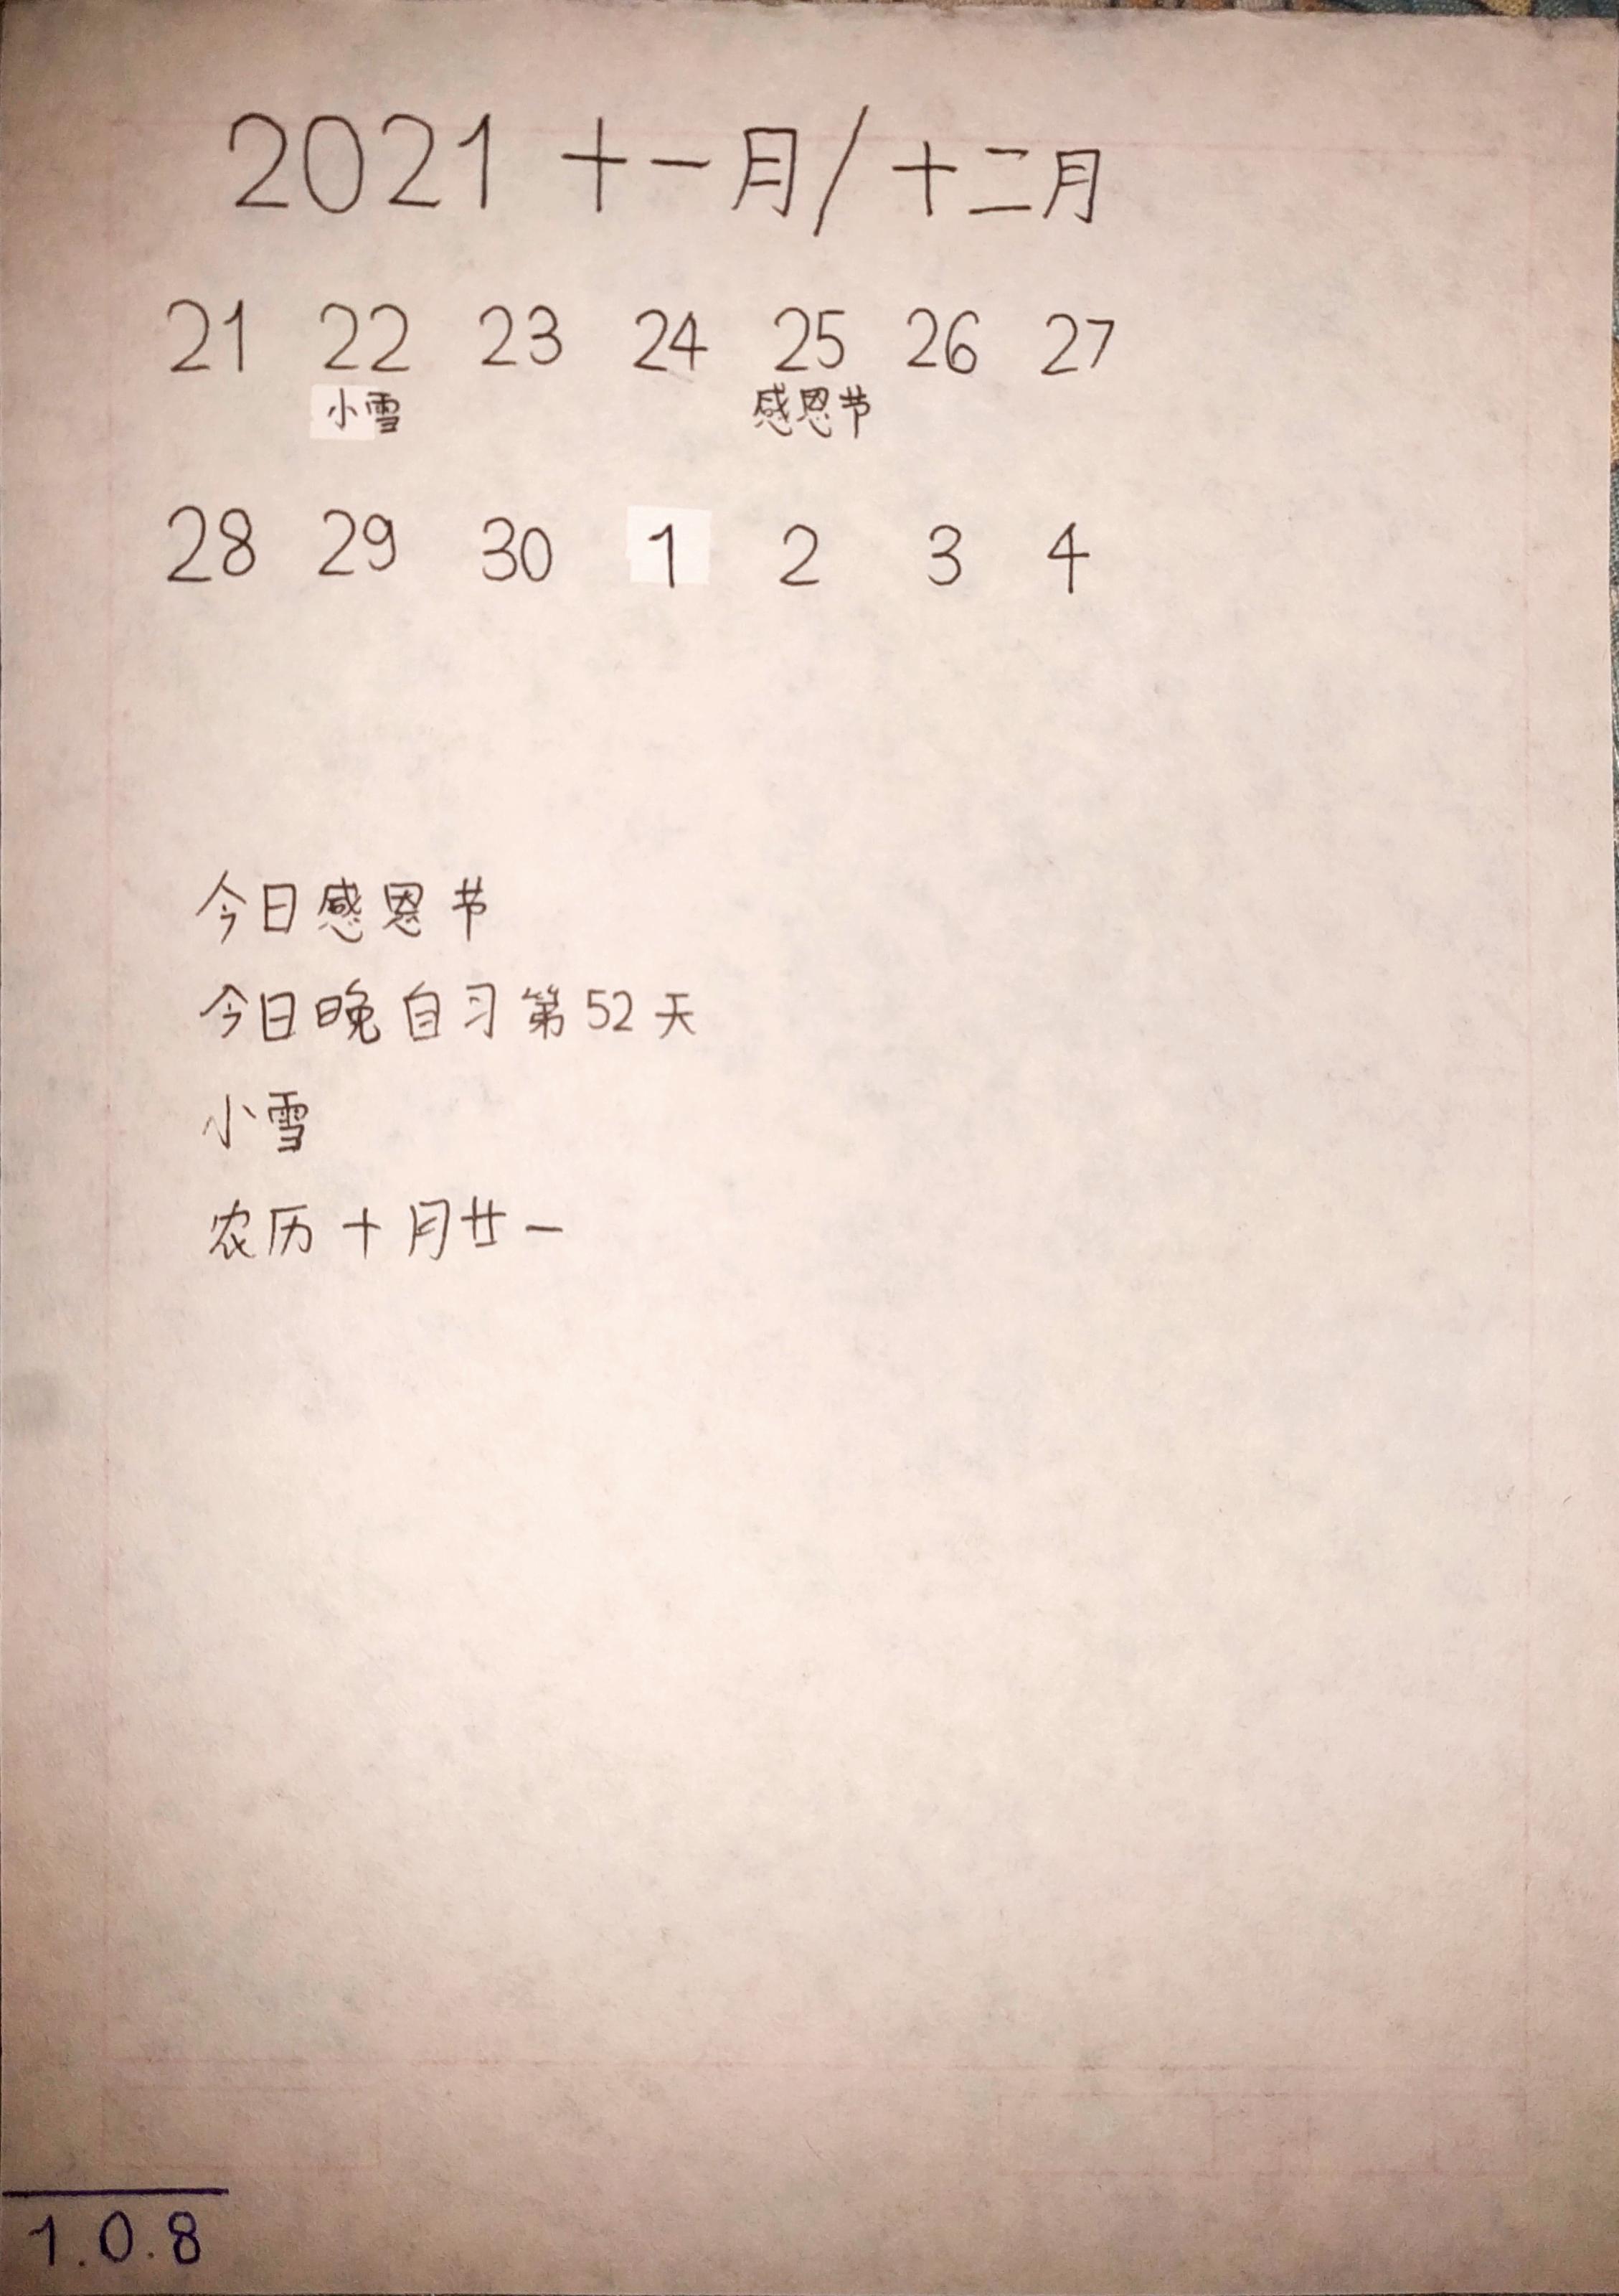 2021 十一月/十二月
21 22 23 24 25 26 27
小雪 感恩节
28 29 30 1 2 3 4
今日感恩节
今日晚自习第52天
小雪
农历十月廿一
1.0.8